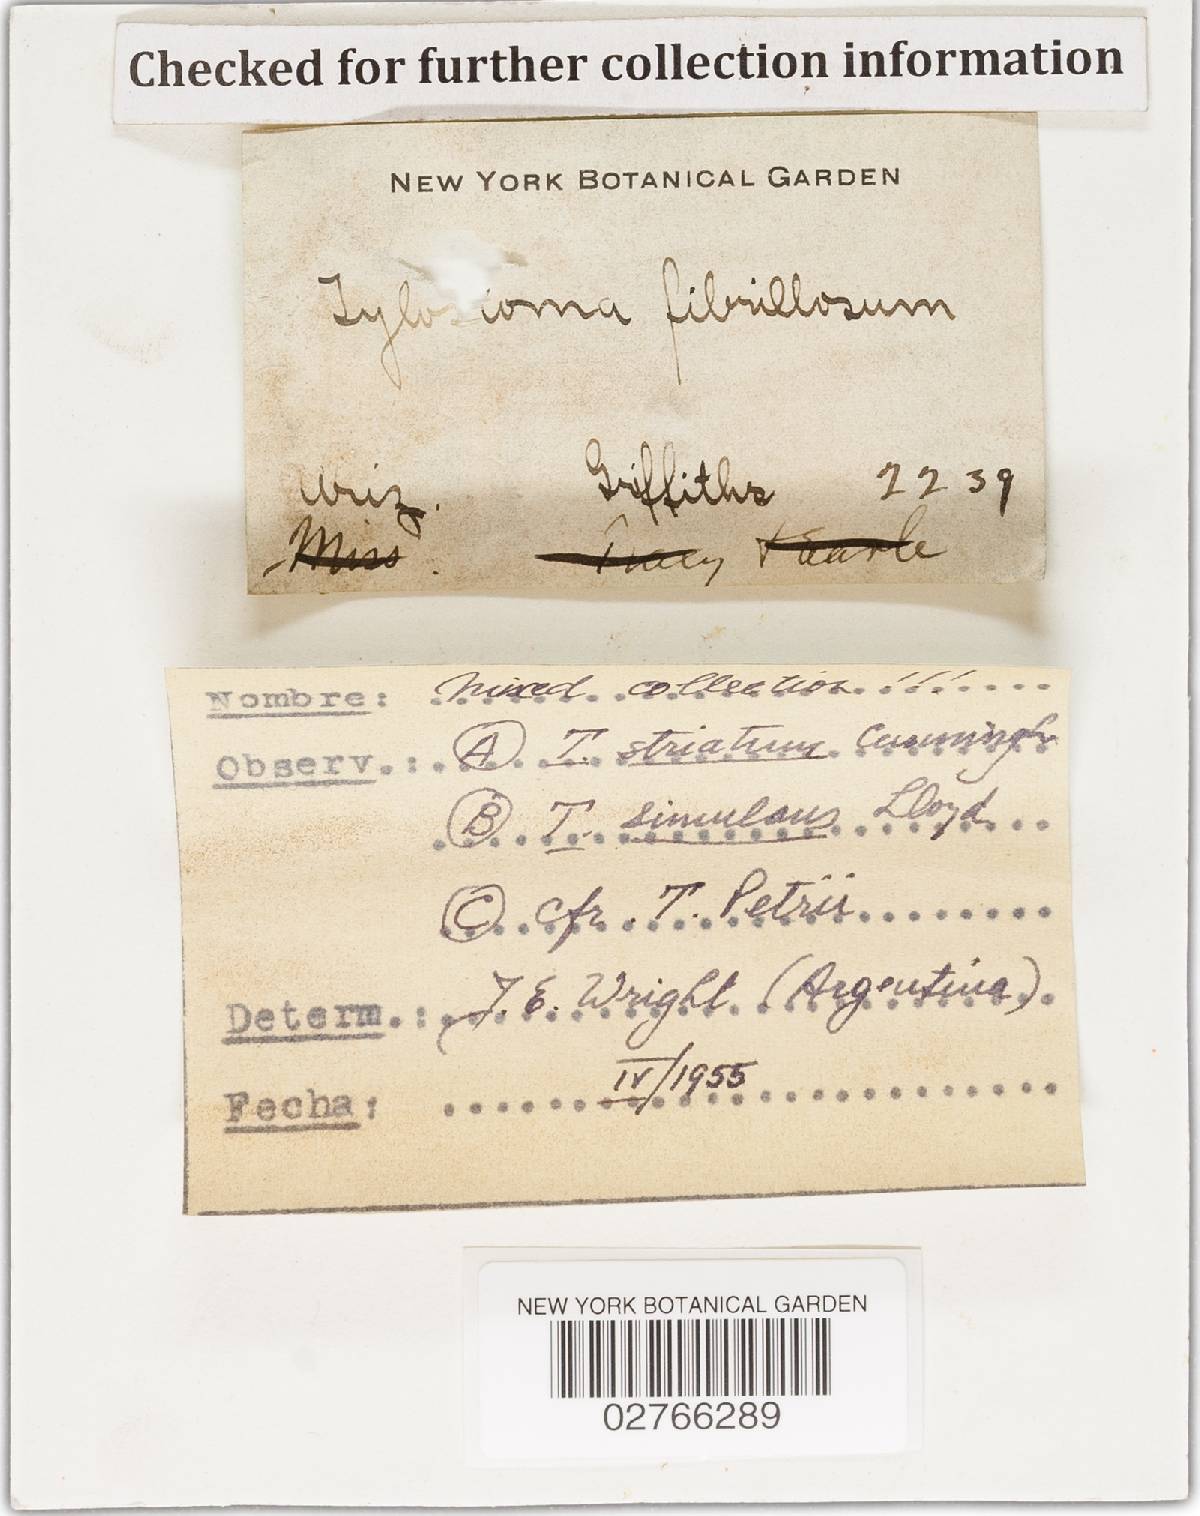 Checked for further collection information
NEW YORK BOTANICAL GARDEN
Tylostoma fibrillosum
Ariz. Griffiths 2239
Miss. Tracy & Earle
Nombre: mixed collection !!!
Observ.: (A) T. striatum Cunningh.
(B) T. simulans Lloyd
(C) cfr. T. Petrii
Determ.: J. E. Wright (Argentina)
Fecha: IV/1955
NEW YORK BOTANICAL GARDEN
02766289